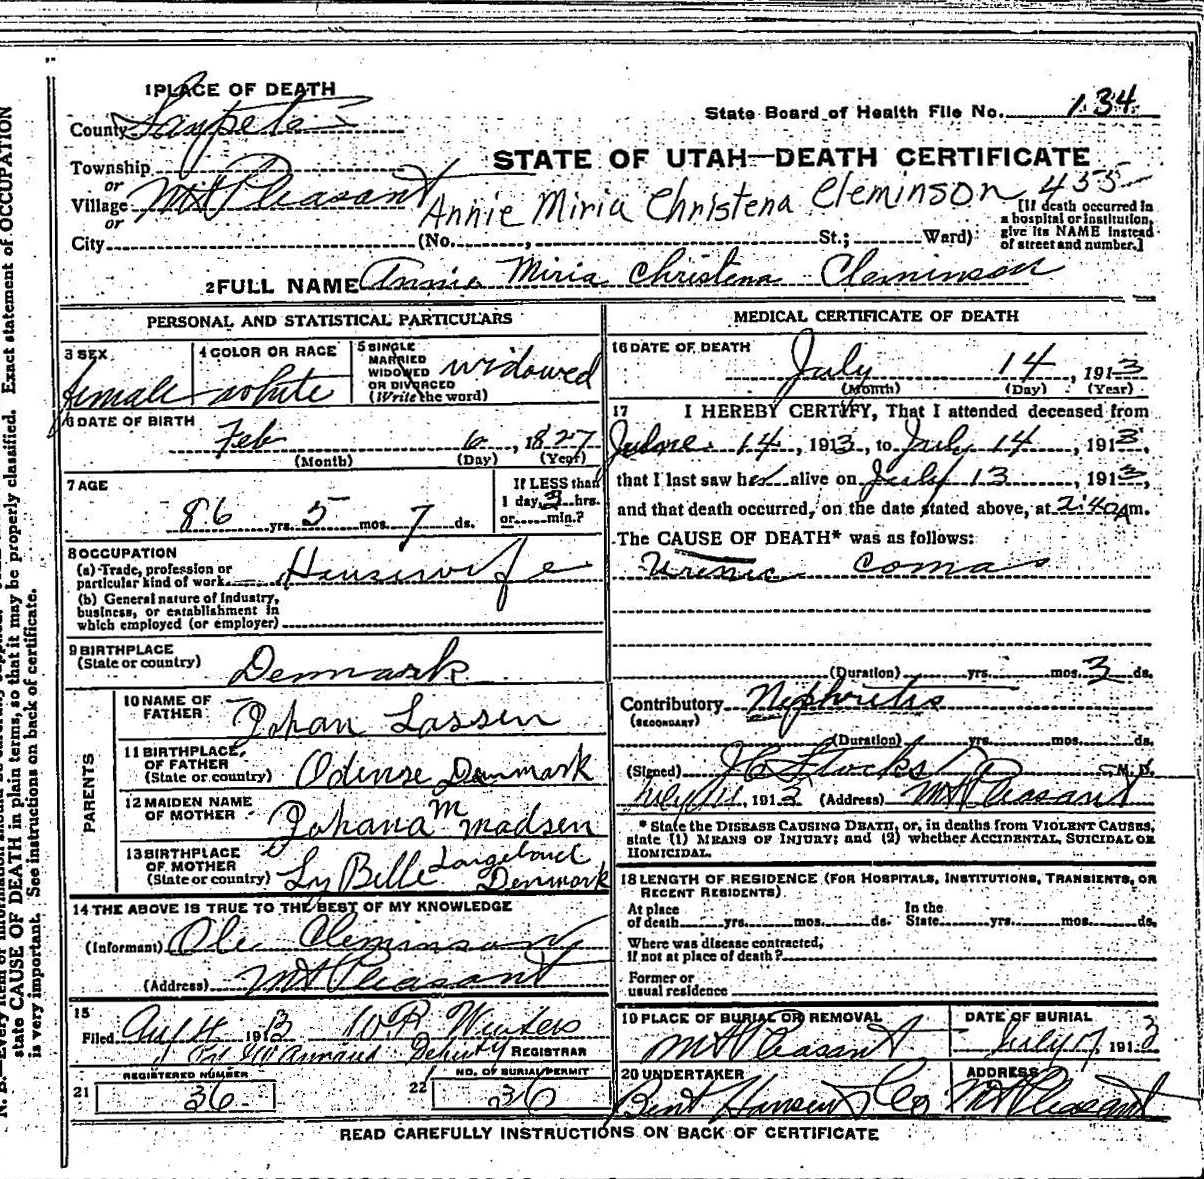 1 PLACE OF DEATH
County Sanpete
State Board of Health File No. 134
Township
or
Village Mt Pleasant
or
City
STATE OF UTAH—DEATH CERTIFICATE
Annie Miria Christena Cleminson 455
(No. , St.; Ward)
[If death occurred in
a hospital or institution,
give its NAME instead
of street and number.]
2 FULL NAME Annie Miria Christena Cleminson
PERSONAL AND STATISTICAL PARTICULARS
3 SEX
female
4 COLOR OR RACE
white
5 SINGLE
MARRIED
WIDOWED
OR DIVORCED
(Write the word)
widowed
6 DATE OF BIRTH
Feb 6, 1827
(Month) (Day) (Year)
7 AGE
86 yrs. 5 mos. 7 ds.
If LESS than
1 day, 3 hrs.
or min.?
8 OCCUPATION
(a) Trade, profession or
particular kind of work Housewife
(b) General nature of industry,
business, or establishment in
which employed (or employer)
9 BIRTHPLACE
(State or country) Denmark
PARENTS
10 NAME OF
FATHER Johan Lassen
11 BIRTHPLACE
OF FATHER
(State or country) Odense Danmark
12 MAIDEN NAME
OF MOTHER Johana M Madsen
13 BIRTHPLACE
OF MOTHER
(State or country) Denmark
14 THE ABOVE IS TRUE TO THE BEST OF MY KNOWLEDGE
(Informant) Ole Cleminson
(Address) Mt Pleasant
15
Filed Aug 4 1913 Winters
Deputy REGISTRAR
21 REGISTERED NUMBER
36
22 NO. OF BURIAL PERMIT
36
MEDICAL CERTIFICATE OF DEATH
16 DATE OF DEATH
July 14, 1913
(Month) (Day) (Year)
17 I HEREBY CERTIFY, That I attended deceased from
June 14, 1913, to July 14, 1913,
that I last saw her alive on July 13, 1913,
and that death occurred, on the date stated above, at 2:40 Am.
The CAUSE OF DEATH* was as follows:
Uremic coma
(Duration) yrs. mos. 3 ds.
Contributory Nephritis
(SECONDARY)
(Duration) yrs. mos. ds.
(Signed) M. D.
July 1913 (Address) Mt Pleasant
* State the DISEASE CAUSING DEATH, or, in deaths from VIOLENT CAUSES,
state (1) MEANS OF INJURY; and (2) whether ACCIDENTAL, SUICIDAL OR
HOMICIDAL.
18 LENGTH OF RESIDENCE (FOR HOSPITALS, INSTITUTIONS, TRANSIENTS, OR
RECENT RESIDENTS)
At place
of death yrs. mos. ds.
In the
State yrs. mos. ds.
Where was disease contracted,
if not at place of death?
Former or
usual residence
19 PLACE OF BURIAL OR REMOVAL
Mt Pleasant
DATE OF BURIAL
July 17, 1913
20 UNDERTAKER
Bent Hansen & Co
ADDRESS
Mt Pleasant
READ CAREFULLY INSTRUCTIONS ON BACK OF CERTIFICATE
state CAUSE OF DEATH in plain terms, so that it may be properly classified. Exact statement of OCCUPATION
is very important. See instructions on back of certificate.